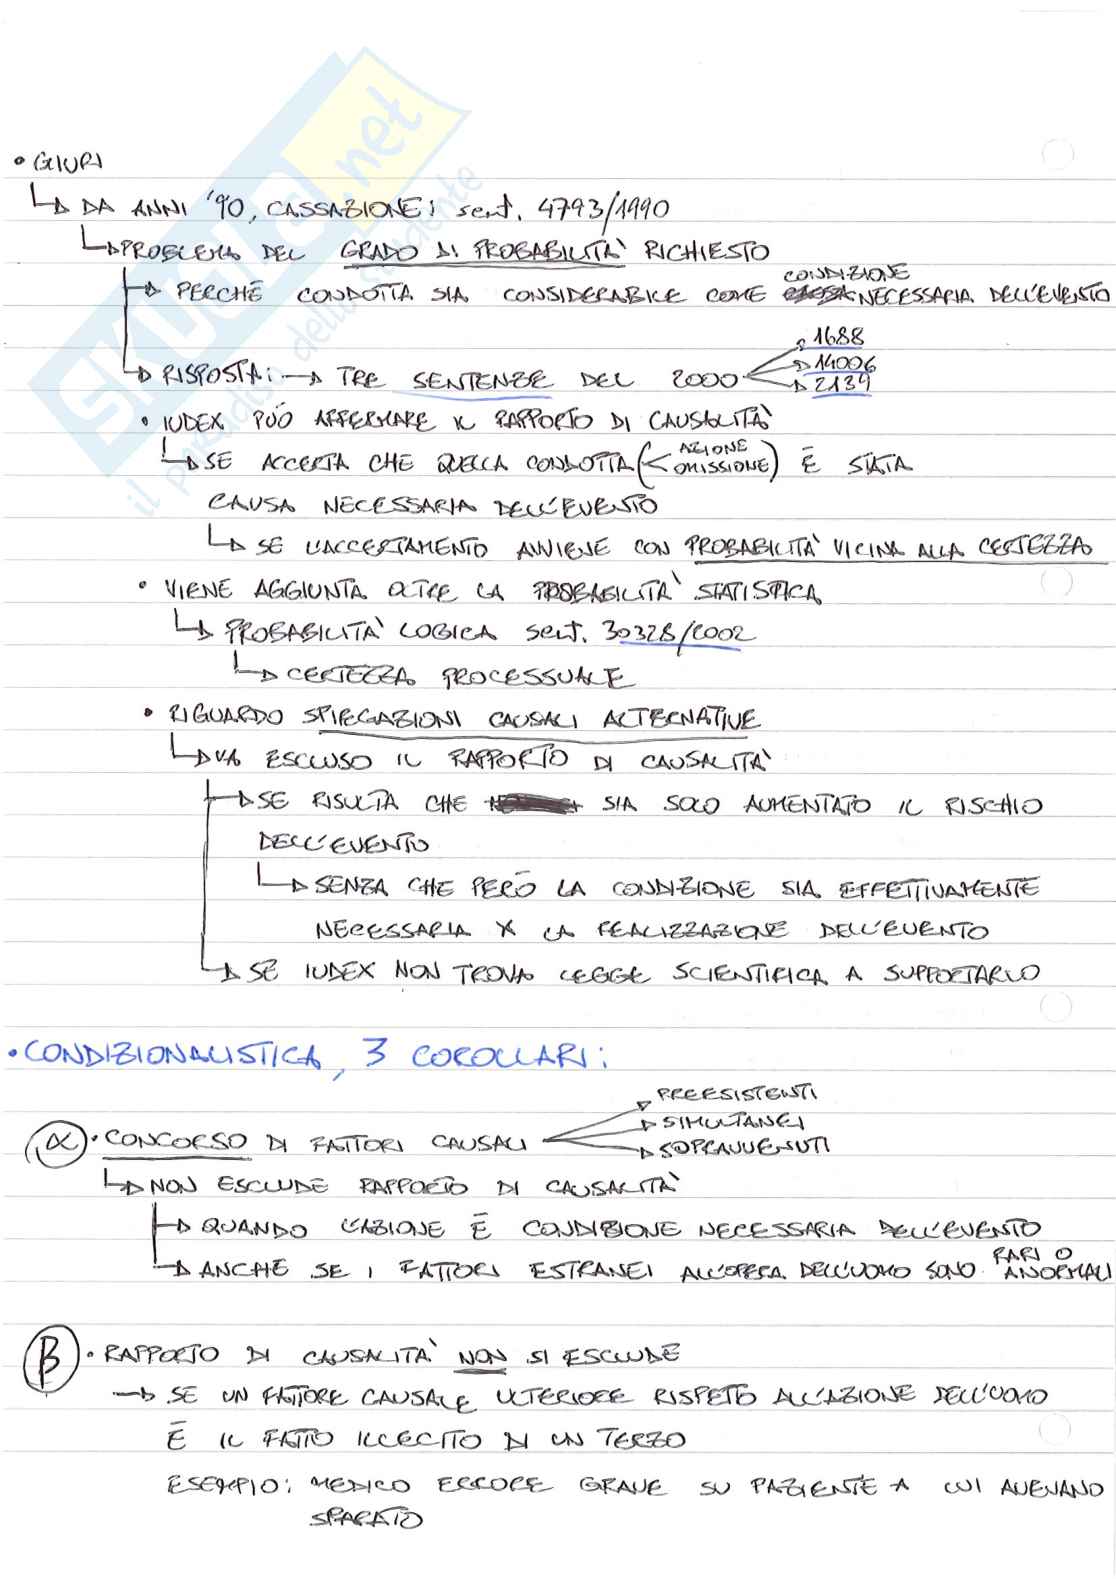 SKUOLA.net
il paradiso dello studente
• GIURI
DA ANNI '90, CASSAZIONE: sent. 4793/1990
PROBLEMA DEL GRADO DI PROBABILITÀ RICHIESTO
CONDIZIONE
PERCHÉ CONDOTTA SIA CONSIDERABILE COME NECESSARIA DELL'EVENTO
1688
14006
RISPOSTA: TRE SENTENZE DEL 2000
2139
• IUDEX PUÒ AFFERMARE IL RAPPORTO DI CAUSALITÀ
SE ACCERTA CHE QUELLA CONDOTTA ( AZIONE OMISSIONE ) È STATA
CAUSA NECESSARIA DELL'EVENTO
SE L'ACCERTAMENTO AVVIENE CON PROBABILITÀ VICINA ALLA CERTEZZA
• VIENE AGGIUNTA OLTRE LA PROBABILITÀ STATISTICA
PROBABILITÀ LOGICA sent. 30328/2002
CERTEZZA PROCESSUALE
• RIGUARDO SPIEGAZIONI CAUSALI ALTERNATIVE
VA ESCLUSO IL RAPPORTO DI CAUSALITÀ
SE RISULTA CHE SIA SOLO AUMENTATO IL RISCHIO
DELL'EVENTO
SENZA CHE PERÒ LA CONDIZIONE SIA EFFETTIVAMENTE
NECESSARIA X LA REALIZZAZIONE DELL'EVENTO
SE IUDEX NON TROVA LEGGE SCIENTIFICA A SUPPORTARLO
• CONDIZIONALISTICA, 3 COROLLARI:
PREESISTENTI
SIMULTANEI
α • CONCORSO DI FATTORI CAUSALI
SOPRAVVENUTI
NON ESCLUDE RAPPORTO DI CAUSALITÀ
QUANDO L'AZIONE È CONDIZIONE NECESSARIA DELL'EVENTO
ANCHE SE I FATTORI ESTRANEI ALL'OPERA DELL'UOMO SONO RARI O ANORMALI
β • RAPPORTO DI CAUSALITÀ NON SI ESCLUDE
SE UN FATTORE CAUSALE ULTERIORE RISPETO ALL'AZIONE DELL'UOMO
È IL FATTO ILLECITO DI UN TERZO
ESEMPIO: MEDICO ERRORE GRAVE SU PAZIENTE A CUI AVEVANO
SPARATO